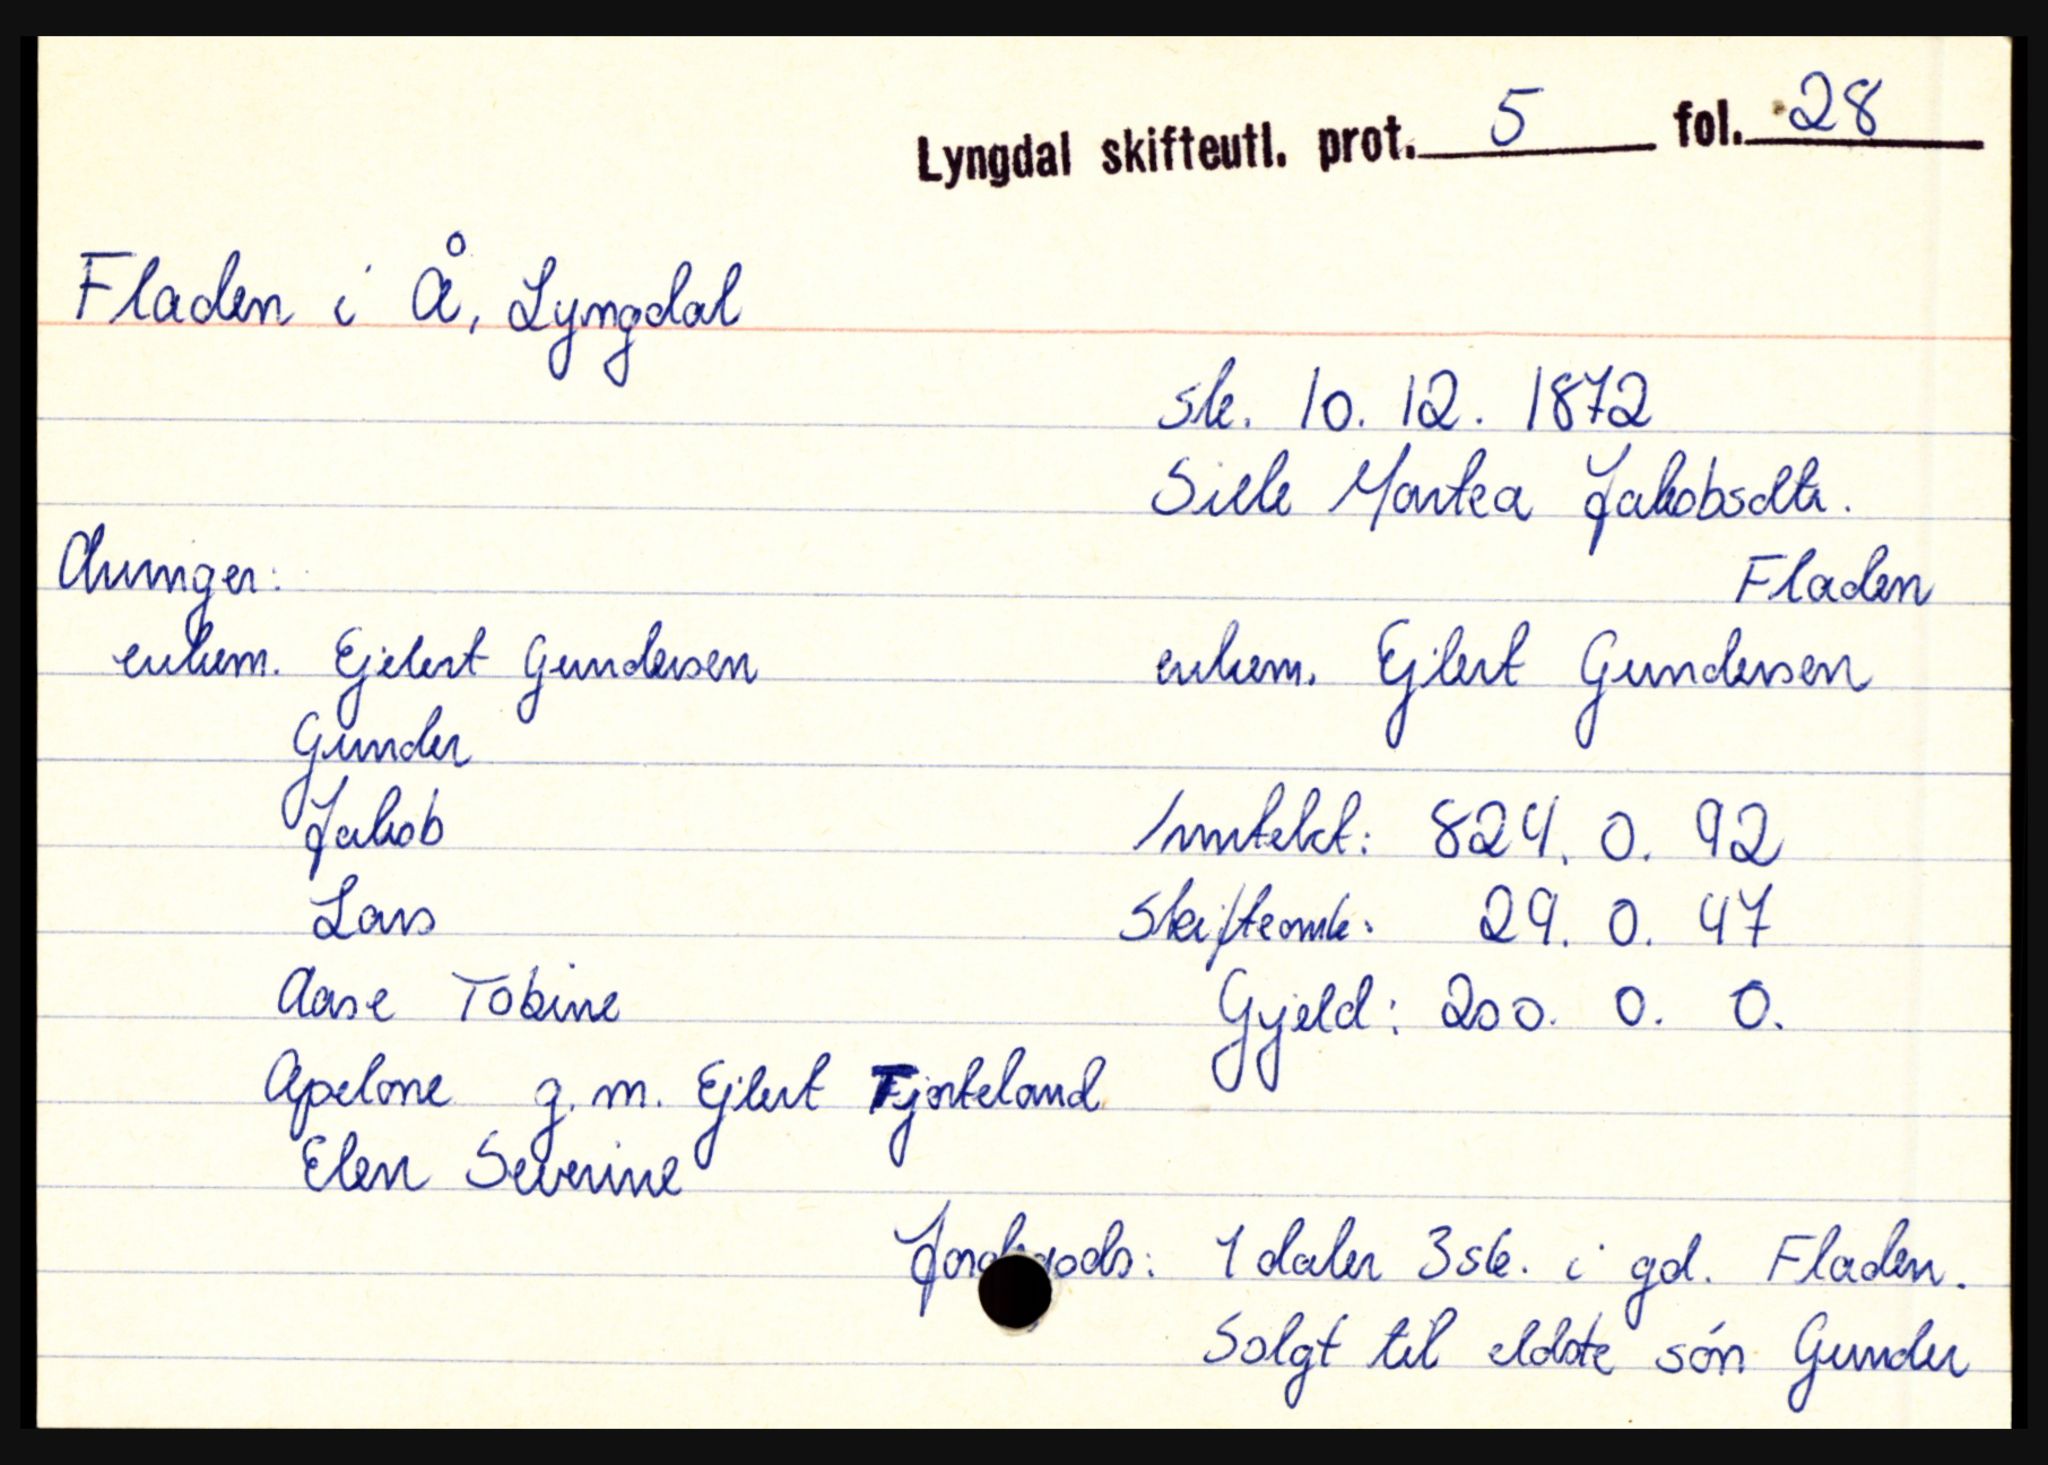 Lyngdal skifteutl. prot. 5 fol. 28
Fladen i Å, Lyngdal
sk. 10. 12. 1872
Siele Martea Jakobsdtr.
Fladen
enkem. Ejlert Gundersen
Arvinger:
enkem. Ejlert Gundersen
Gunder
Jakob
Lars
Aase Tobine
Apelone g. m. Ejlert Tjorteland
Elen Severine
Inntekt: 824. 0. 92
Skifteomk: 29. 0. 47
Gjeld: 200. 0. 0.
Jordegods: 1 daler 3 sk. i gd. Fladen.
Solgt til eldste són Gunder